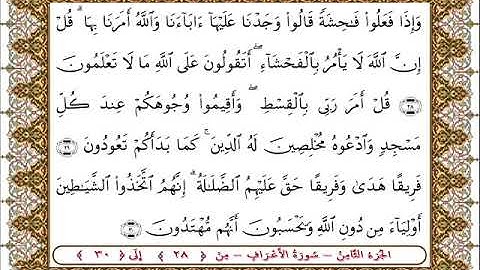 وَإِذَا فَعَلُوا۟ فَـٰحِشَةً قَالُوا۟ وَجَدْنَا عَلَيْهَآ ءَابَآءَنَا وَٱللَّهُ أَمَرَنَا بِهَا ۗ قُلْ
إِنَّ ٱللَّهَ لَا يَأْمُرُ بِٱلْفَحْشَآءِ ۖ أَتَقُولُونَ عَلَى ٱللَّهِ مَا لَا تَعْلَمُونَ
﴿٢٨﴾ قُلْ أَمَرَ رَبِّى بِٱلْقِسْطِ ۖ وَأَقِيمُوا۟ وُجُوهَكُمْ عِندَ كُلِّ
مَسْجِدٍ وَٱدْعُوهُ مُخْلِصِينَ لَهُ ٱلدِّينَ ۚ كَمَا بَدَأَكُمْ تَعُودُونَ ﴿٢٩﴾
فَرِيقًا هَدَىٰ وَفَرِيقًا حَقَّ عَلَيْهِمُ ٱلضَّلَـٰلَةُ ۗ إِنَّهُمُ ٱتَّخَذُوا۟ ٱلشَّيَـٰطِينَ
أَوْلِيَآءَ مِن دُونِ ٱللَّهِ وَيَحْسَبُونَ أَنَّهُم مُّهْتَدُونَ ﴿٣٠﴾
الجزء الثامن - سورة الأعراف - من ﴿ ٢٨ ﴾ إلى ﴿ ٣٠ ﴾